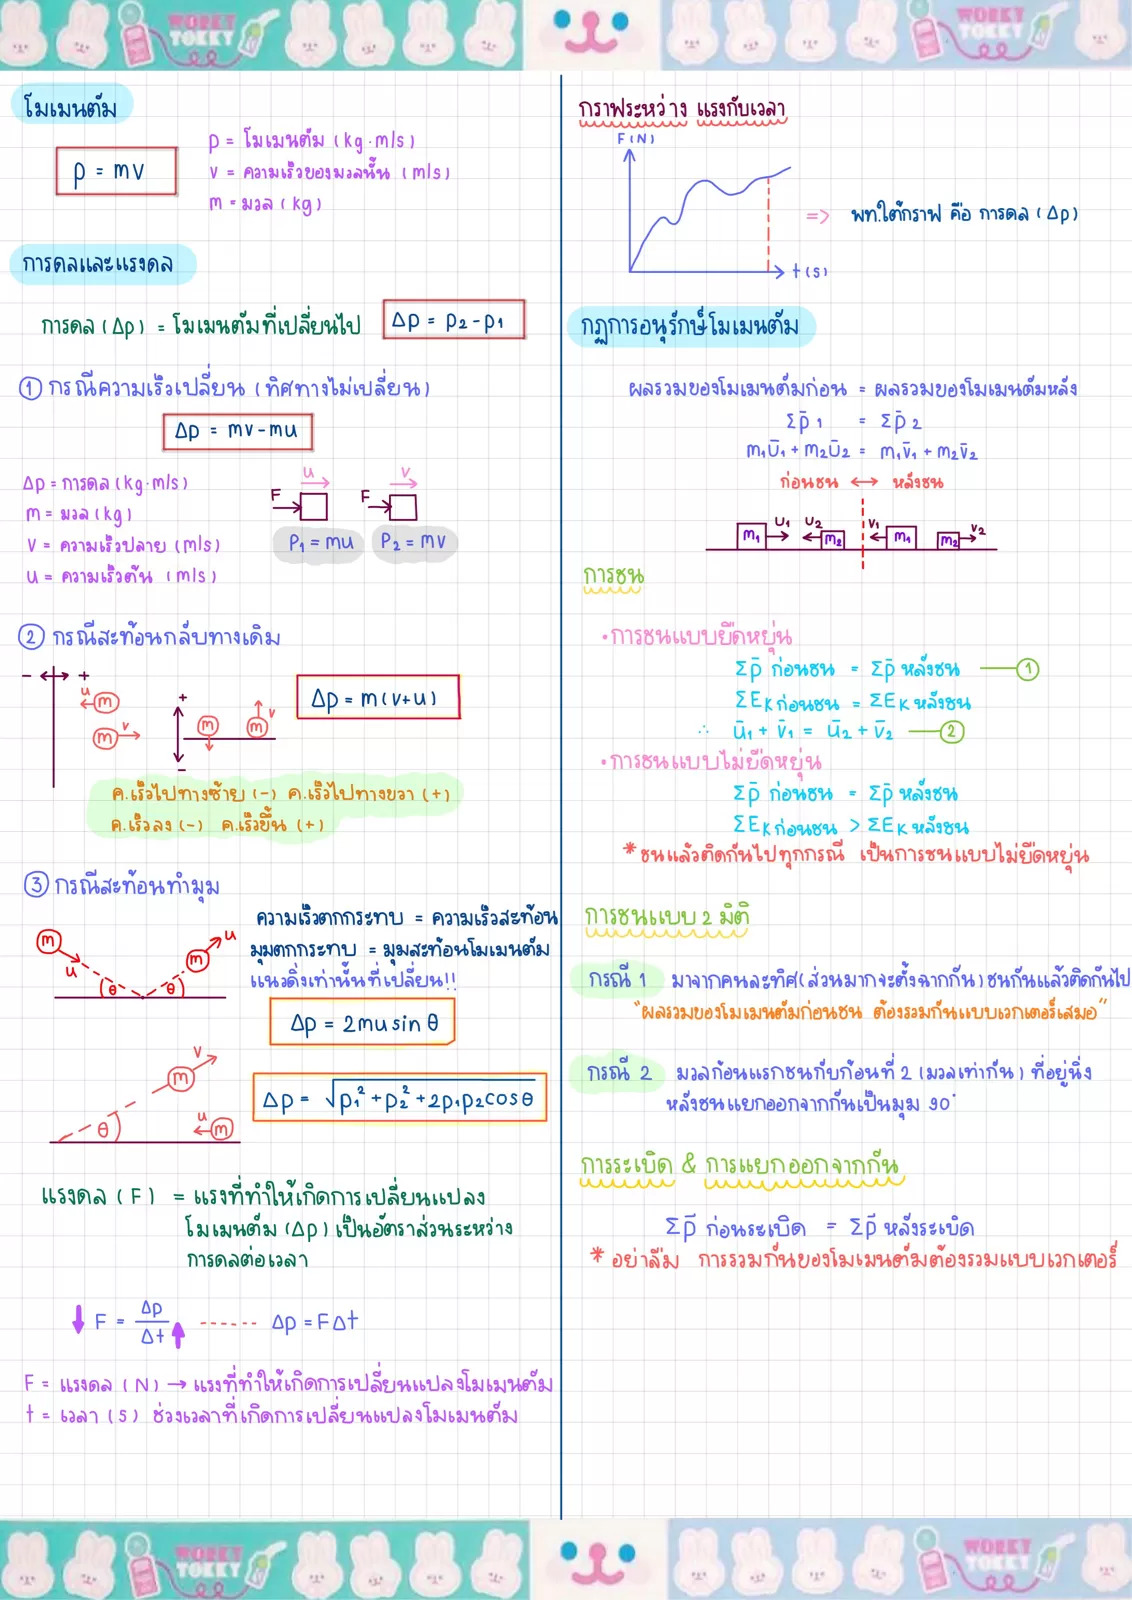 WORKY
TOKKY
WORKY
TOKKY
โมเมนตัม
p = mv
p = โมเมนตัม (kg·m/s)
v = ความเร็วของมวลนั้น (m/s)
m = มวล (kg)
การดลและแรงดล
การดล (Δp) = โมเมนตัมที่เปลี่ยนไป
Δp = p₂-p₁
① กรณีความเร็วเปลี่ยน (ทิศทางไม่เปลี่ยน)
Δp = mv-mu
Δp = การดล (kg·m/s)
m = มวล (kg)
v = ความเร็วปลาย (m/s)
u = ความเร็วต้น (m/s)
u v
F F
P₁ = mu P₂ = mv
② กรณีสะท้อนกลับทางเดิม
- +
u m
m v
+
-
m m v
Δp = m(v+u)
ค.เร็วไปทางซ้าย (-) ค.เร็วไปทางขวา (+)
ค.เร็วลง (-) ค.เร็วขึ้น (+)
③ กรณีสะท้อนทำมุม
m u θ θ m u
ความเร็วตกกระทบ = ความเร็วสะท้อน
มุมตกกระทบ = มุมสะท้อนโมเมนตัม
แนวดิ่งเท่านั้นที่เปลี่ยน!!
Δp = 2musinθ
v
m
θ
u
m
Δp = √p₁²+p₂²+2p₁p₂cosθ
แรงดล (F) = แรงที่ทำให้เกิดการเปลี่ยนแปลง
โมเมนตัม (Δp) เป็นอัตราส่วนระหว่าง
การดลต่อเวลา
F = Δp/Δt ------ Δp = FΔt
F = แรงดล (N) → แรงที่ทำให้เกิดการเปลี่ยนแปลงโมเมนตัม
t = เวลา (s) ช่วงเวลาที่เกิดการเปลี่ยนแปลงโมเมนตัม
กราฟระหว่าง แรงกับเวลา
F(N)
t(s)
=> พท.ใต้กราฟ คือ การดล (Δp)
กฏการอนุรักษ์โมเมนตัม
ผลรวมของโมเมนต์มก่อน = ผลรวมของโมเมนต์มหลัง
Σp̄₁ = Σp̄₂
m₁ū₁+m₂ū₂ = m₁v̄₁+m₂v̄₂
ก่อนชน ↔ หลังชน
m₁ u₁ u₂ m₂ v₁ m₁ m₂ v₂
การชน
•การชนแบบยืดหยุ่น
Σp̄ ก่อนชน = Σp̄ หลังชน —①
ΣEₖก่อนชน = ΣEₖ หลังชน
∴ ū₁ + v̄₁ = ū₂ + v̄₂ —②
•การชนแบบไม่ยืดหยุ่น
Σp̄ ก่อนชน = Σp̄ หลังชน
ΣEₖก่อนชน > ΣEₖ หลังชน
*ชนแล้วติดกันไปทุกกรณี เป็นการชนแบบไม่ยืดหยุ่น
การชนแบบ 2 มิติ
กรณี 1 มาจากคนละทิศ(ส่วนมากจะตั้งฉากกัน) ชนกันแล้วติดกันไป
"ผลรวมของโมเมนต์มก่อนชน ต้องรวมกันแบบเวกเตอร์เสมอ"
กรณี 2 มวลก้อนแรกชนกับก้อนที่ 2 (มวลเท่ากัน) ที่อยู่นิ่ง
หลังชนแยกออกจากกันเป็นมุม 90°
การระเบิด & การแยกออกจากกัน
Σp̄ ก่อนระเบิด = Σp̄ หลังระเบิด
* อย่าลืม การรวมกันของโมเมนต์มต้องรวมแบบเวกเตอร์
WORKY
TOKKY
WORKY
TOKKY